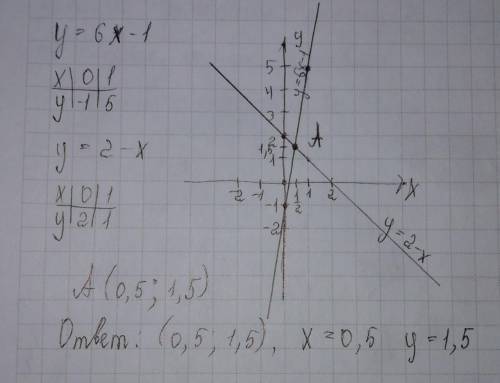 y = 6x - 1
x | 0 | 1
y | -1 | 5
y = 2 - x
x | 0 | 1
y | 2 | 1
y
5
4
3
2
1,5
1
-2 -1 1/2 1 2
x
-1
-2
A
y=6x-1
y=2-x
A (0,5; 1,5)
Ответ: (0,5; 1,5), x = 0,5 y = 1,5